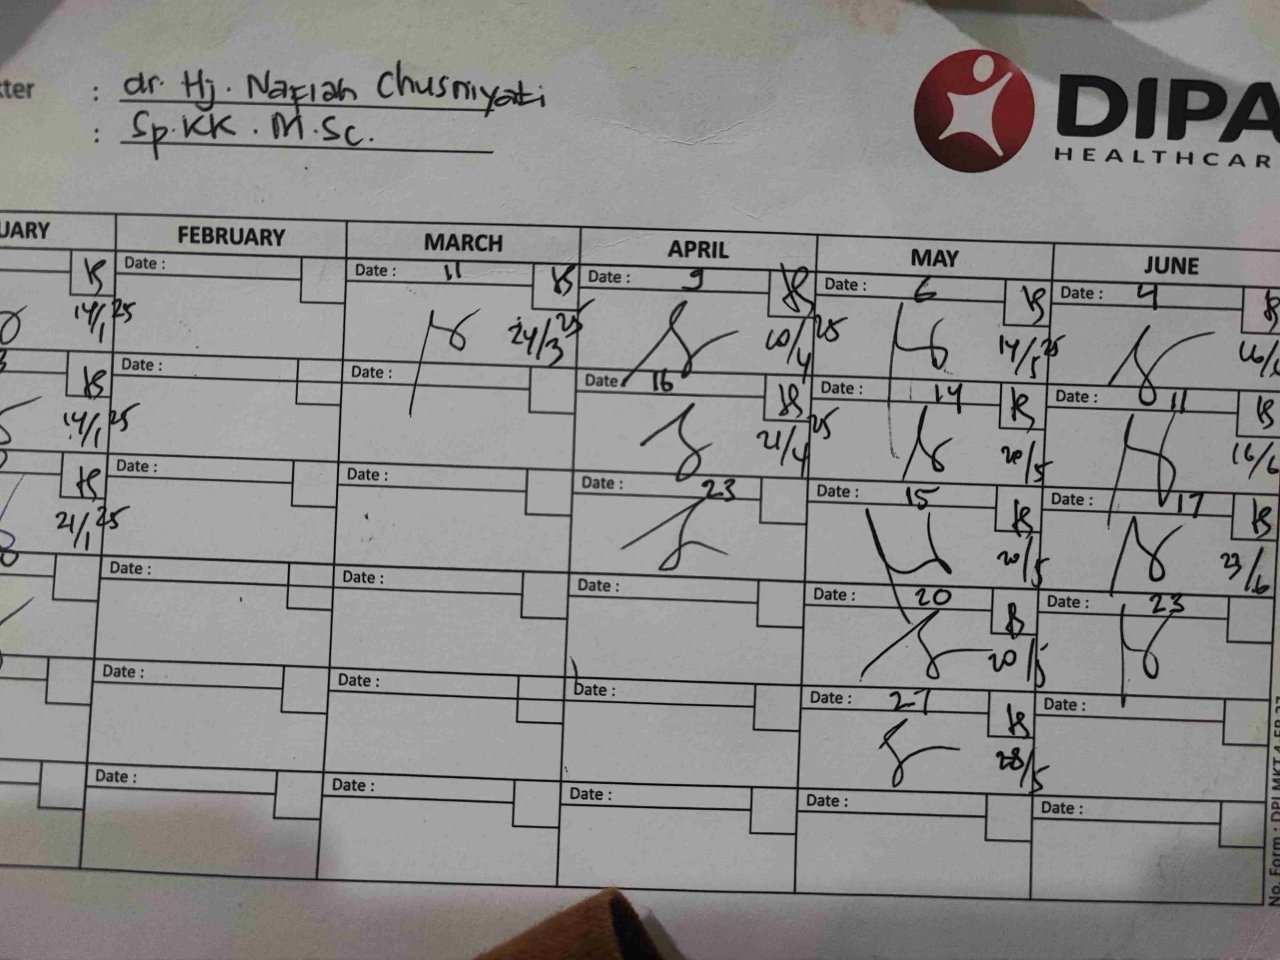 : dr. Hj. Nafiah Chusniyati
: Sp.KK. M.Sc.
DIPA
HEALTHCAR
UARY FEBRUARY MARCH APRIL MAY JUNE
Date : Date : 11 Date : 9 Date : 6 Date : 4
14/1 25 24/3 25 10/4 25 14/5 25
Date : Date : Date : 16 Date : 14 Date : 11
14/1 25 21/4 25 20/5 16/6
Date : Date : Date : 23 Date : 15 Date : 17
21/1 25 20/5 23/6
Date : Date : Date : Date : 20 Date : 23
20/5
Date : Date : Date : Date : 27 Date :
28/5
Date : Date : Date : Date : Date :
No. Form : DPI.MKT.4.FR.27